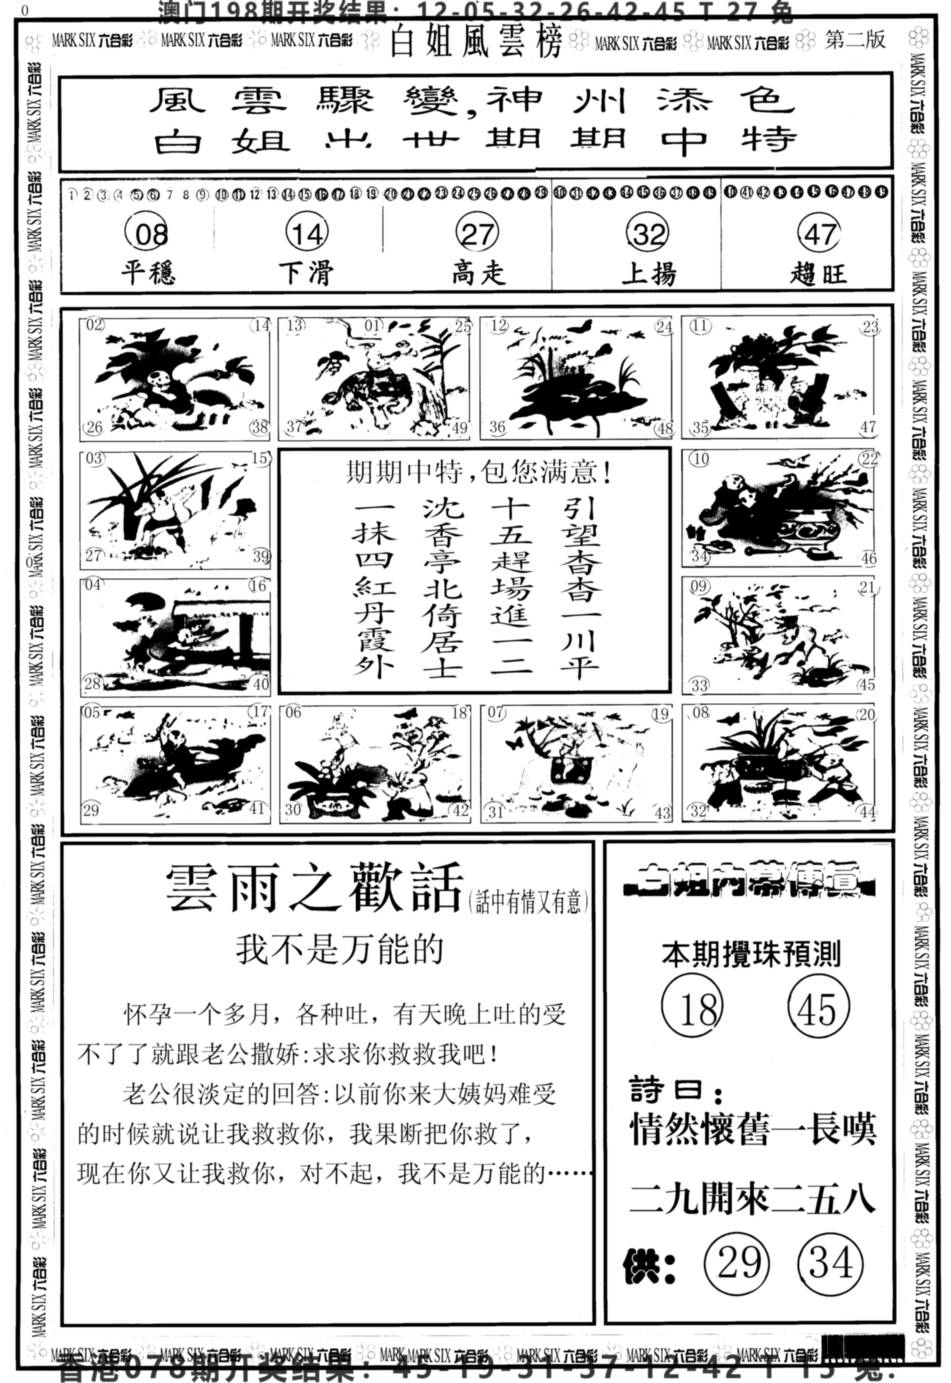 0
澳门198期开奖结果：12-05-32-26-42-45 T 27 兔
MARK SIX 六合彩 MARK SIX 六合彩 MARK SIX 六合彩 白姐風雲榜 MARK SIX 六合彩 MARK SIX 六合彩 第二版
風雲驟變,神州添色
白姐出世期期中特
08 14 27 32 47
平穩 下滑 高走 上揚 趨旺
02 14 26 38
13 01 25 37 49
12 24 36 48
11 23 35 47
03 15 27 39
10 22 34 46
04 16 28 40
09 21 33 45
05 17 29 41
06 18 30 42
07 19 31 43
08 20 32 44
期期中特,包您满意!
引望杳杳一川平
十五趕場進一二
沈香亭北倚居士
一抹四紅丹霞外
雲雨之歡話(話中有情又有意)
我不是万能的
怀孕一个多月，各种吐，有天晚上吐的受
不了了就跟老公撒娇:求求你救救我吧！
老公很淡定的回答:以前你来大姨妈难受
的时候就说让我救救你，我果断把你救了，
现在你又让我救你，对不起，我不是万能的……
白姐內幕傳真
本期攪珠預測
18 45
詩曰：
情然懷舊一長嘆
二九開來二五八
供： 29 34
MARK SIX 六合彩 MARK SIX 六合彩 MARK SIX 六合彩 MARK SIX 六合彩 MARK SIX 六合彩 MARK SIX 六合彩 MARK SIX 六合彩
香港078期开奖结果：45-19-31-37-12-42 T 15 兔.